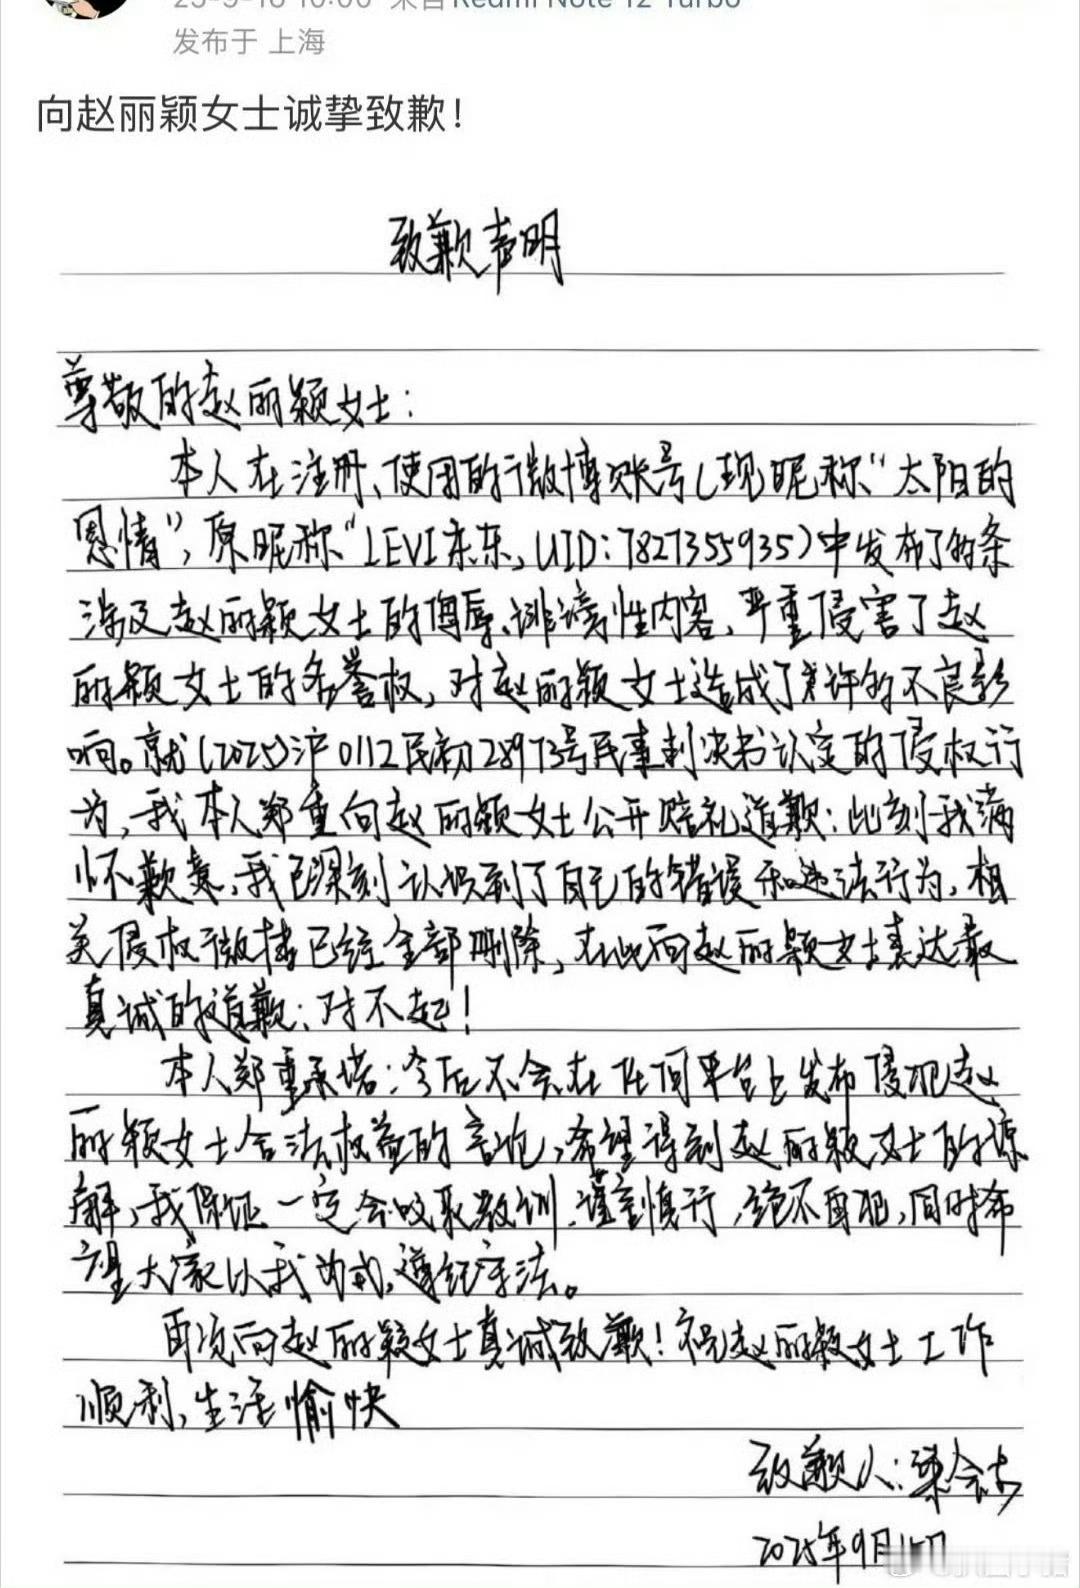 25-9-16 10:00 来自 Redmi Note 12 Turbo
发布于 上海
向赵丽颖女士诚挚致歉！
致歉声明
尊敬的赵丽颖女士：
本人在注册、使用的微博账号（现昵称“太阳的
恩情”，原昵称“LEVI京东，UID：7827355935）中发布了的条
涉及赵丽颖女士的侮辱、诽谤性内容，严重侵害了赵
丽颖女士的名誉权，对赵丽颖女士造成了来许的不良影
响。就（2025）沪0112民初28973号民事判决书认定的侵权行
为，我本人郑重向赵丽颖女士公开赔礼道歉：此刻我满
怀歉意，我已深刻认识到了自己的错误和违法行为，相
关侵权微博已经全部删除，在此向赵丽颖女士表达最
真诚的道歉：对不起！
本人郑重承诺：今后不会在任何平台上发布侵犯赵
丽颖女士合法权益的言论，希望得到赵丽颖女士的谅
解，我保证一定会吸取教训、谨言慎行，绝不再犯，同时希
望大家以我为戒，遵纪守法。
再次向赵丽颖女士真诚致歉！祝赵丽颖女士工作
顺利，生活愉快
致歉人：梁会
2025年9月15日